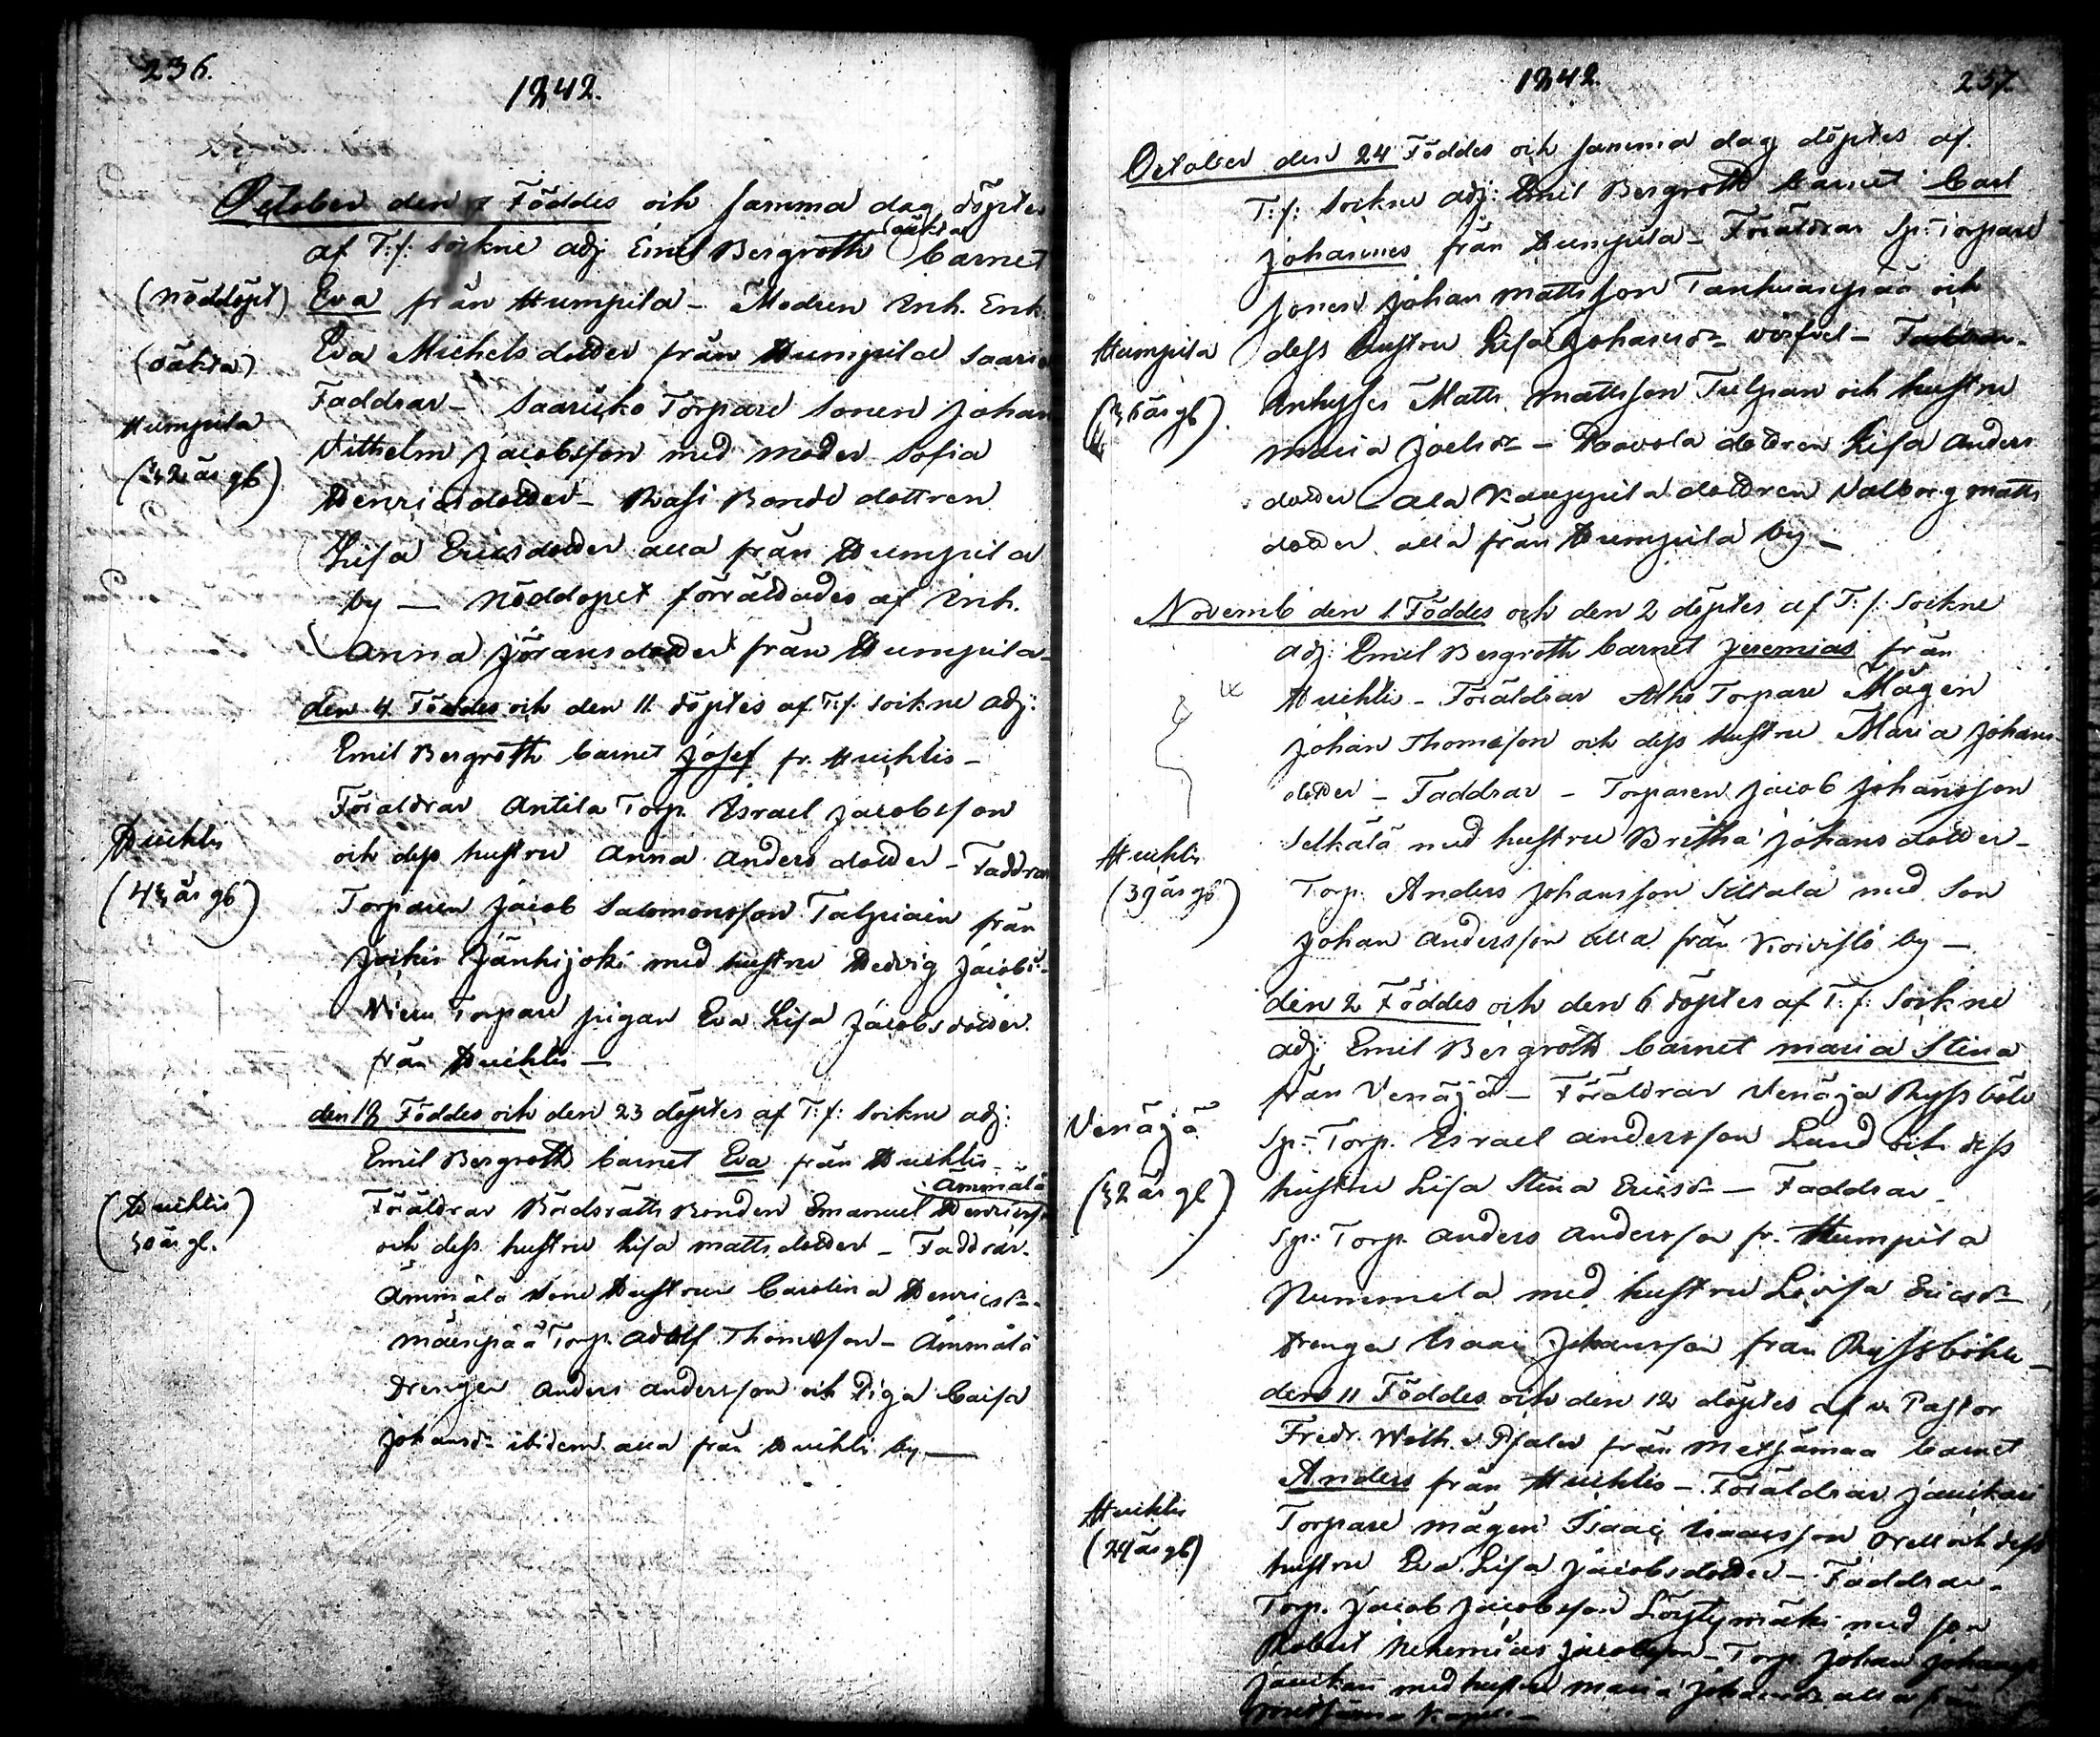 236.
1842.
October den Föddes och samma dag döptes
af T:f: Sockne adj Emil Bergroth (oäkta) barnet
(nöddöpt)
Eva från Humpila - Modren Inh. Enk.
(oäkta)
Eva Michelsdotter från Humpila
Humpila
Faddrar - Torpare Sonen Johan
Vilhelm Jacobsson med moder Sofia
Henricsdotter - Rasi Bonde dottren
Lisa Ericsdotter alla från Humpila
by — Nöddopet förrättades af Inh.
Anna Jöransdotter från Humpila -
den 4 Föddes och den 11 döptes af T:f: Sockne adj:
Emil Bergroth barnet Josef fr. Huchtis -
Föräldrar Antila Torp. Israel Jacobsson
Huchtis
och dess hustru Anna Andersdotter - Faddrar
Torparen Jacob Salomonsson Talpiain från
Jockis Jänhijoki med hustru Hedvig Jacobsd
Niemi Torpare pigan Eva Lisa Jacobsdotter
från Huchtis —
den 18 Föddes och den 23 döptes af T:f: Sockne adj:
Emil Bergroth barnet Eva från Huchtis -
Ämmälä
(Huchtis)
Föräldrar Bördsrätts Bonden Emanuel Henricss
30 år gl.
och dess hustru Lisa Mattsdotter - Faddrar.
Ämmälä Sone Hustrun Carolina Henricsd:r
Mäenpää Torp. Adolf Thomasson - Ämmälä
Drengen Anders Andersson och Piga Caisa
Johansd:r ibidem alla från Huchti by —
1842.
237.
October den 24 Föddes och samma dag döptes af
T:f: Sockne adj: Emil Bergroth barnet Carl
Johannes från Humpila - Föräldrar Sp: Torpare
sonen Johan Mattsson Tanhuanpää och
Humpila
dess hustru Lisa Johansd:r - Faddrar -
Matts Mattsson och hustru
Maria Joelsd:r - Paavola dottren Lisa Anders
dotter - Ala Kauppila dottren Valborg Matts
dotter alla från Humpila by —
Novemb den 1 Föddes och den 2 döptes af T:f: Sockne
adj: Emil Bergroth barnet Jeremias från
Huchtis - Föräldrar Alho Torpare Mågen
Johan Thomasson och dess hustru Maria Johans-
dotter - Faddrar - Torparen Jacob Johansson
Huchtis
med hustru Britha Johansdotter -
(39 år gl)
Torp. Anders Johansson med Son
Johan Andersson alla från Koivisto by —
den 2 Föddes och den 6 döptes af T:f: Sockne
adj: Emil Bergroth barnet Maria Stina
från Venäjä - Föräldrar Venäjä Ryssböle
Venäjä
Sp: Torp. Israel Andersson Lund och dess
(32 år gl)
hustru Lisa Stina Ericsd:r - Faddrar.
Sp: Torp. Anders Andersson fr. Humpila
Nummela med hustru Lovisa Ericsd:r
Drengen Isaac Johansson från Ryssböhle -
den 11 Föddes och den 12 döptes af v. Pastor
Fredr. Wilh. från Metsämaa barnet
Anders från Huchtis - Föräldrar Jänikari
Huchtis
Torpare mågen Isaac Isaacsson och dess
(29 år gl)
hustru Eva Lisa Jacobsdotter - Faddrar -
Torp. Jacob Jacobsson Löytymäki med son
Robert Nehemias Jacobsson - Torp Johan Johansson
med hustru Maria Johansd:r alla från